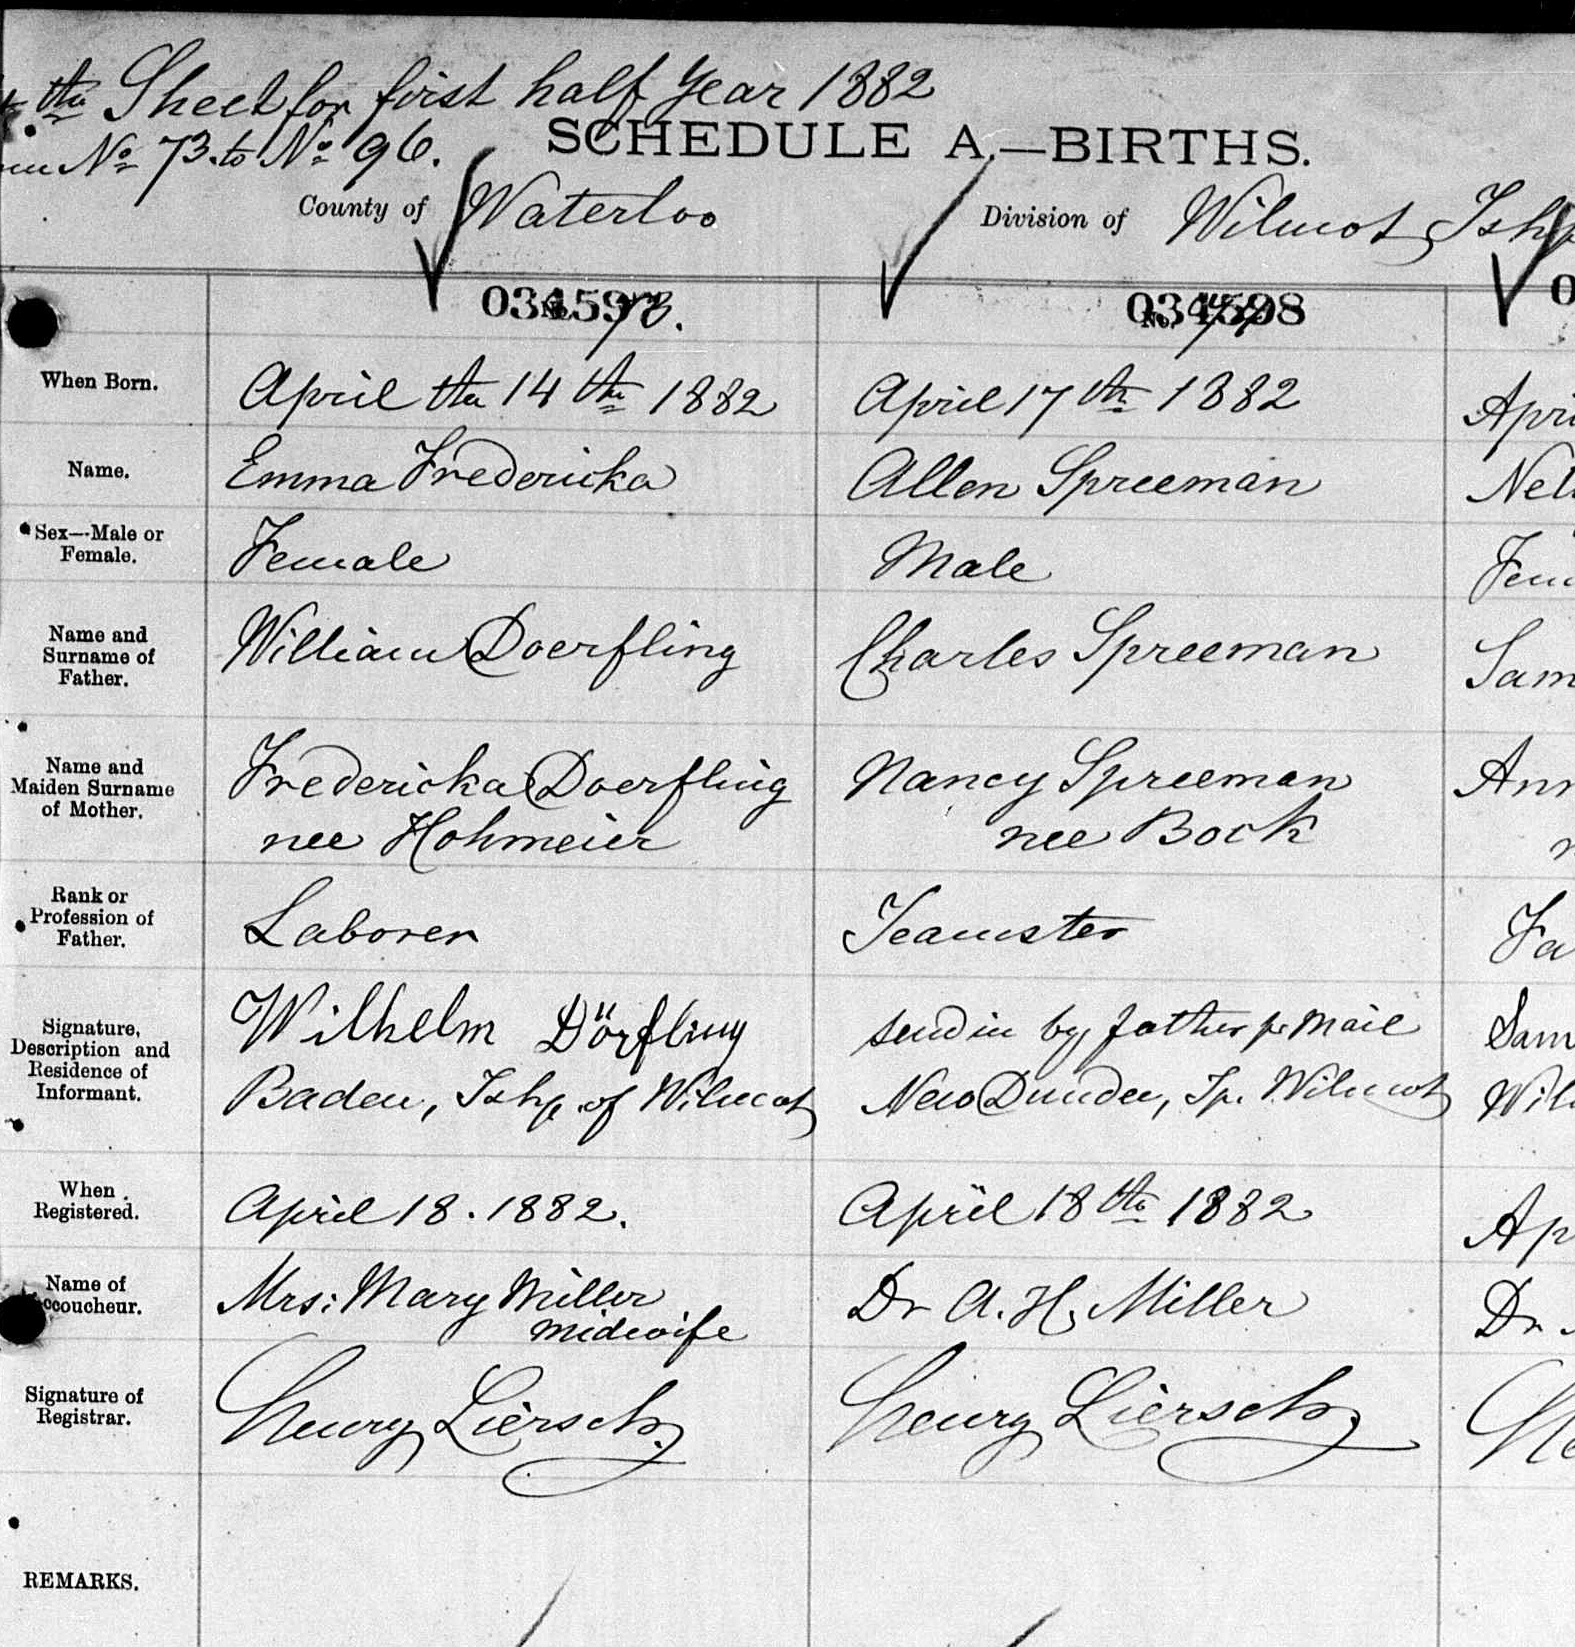 the Sheet for first half Year 1882
No 73. to No 96.
SCHEDULE A.—BIRTHS.
County of Waterloo
Division of Wilmot Tshp
034597 No. 73.
034598 No. 74
0
When Born.
April the 14 th 1882
April 17 th 1882
Apri
Name.
Emma Fredericka
Allen Spreeman
Nel
Sex—Male or
Female.
Female
Male
Fem
Name and
Surname of
Father.
William Doerfling
Charles Spreeman
Sam
Name and
Maiden Surname
of Mother.
Fredericka Doerfling
nee Hohmeier
Nancy Spreeman
nee Bock
Ann
n
Rank or
Profession of
Father.
Laborer
Teamster
Fa
Signature,
Description and
Residence of
Informant.
Wilhelm Dörfling
Baden, Tshp. of Wilmot
send in by father pr Mail
New Dundee, Tp. Wilmot
Sam
Wil
When
Registered.
April 18. 1882.
April 18 th 1882
Ap
Name of
ccoucheur.
Mrs: Mary Miller
midwife
Dr A. H. Miller
Dr
Signature of
Registrar.
Henry Liersch
Henry Liersch
He
REMARKS.